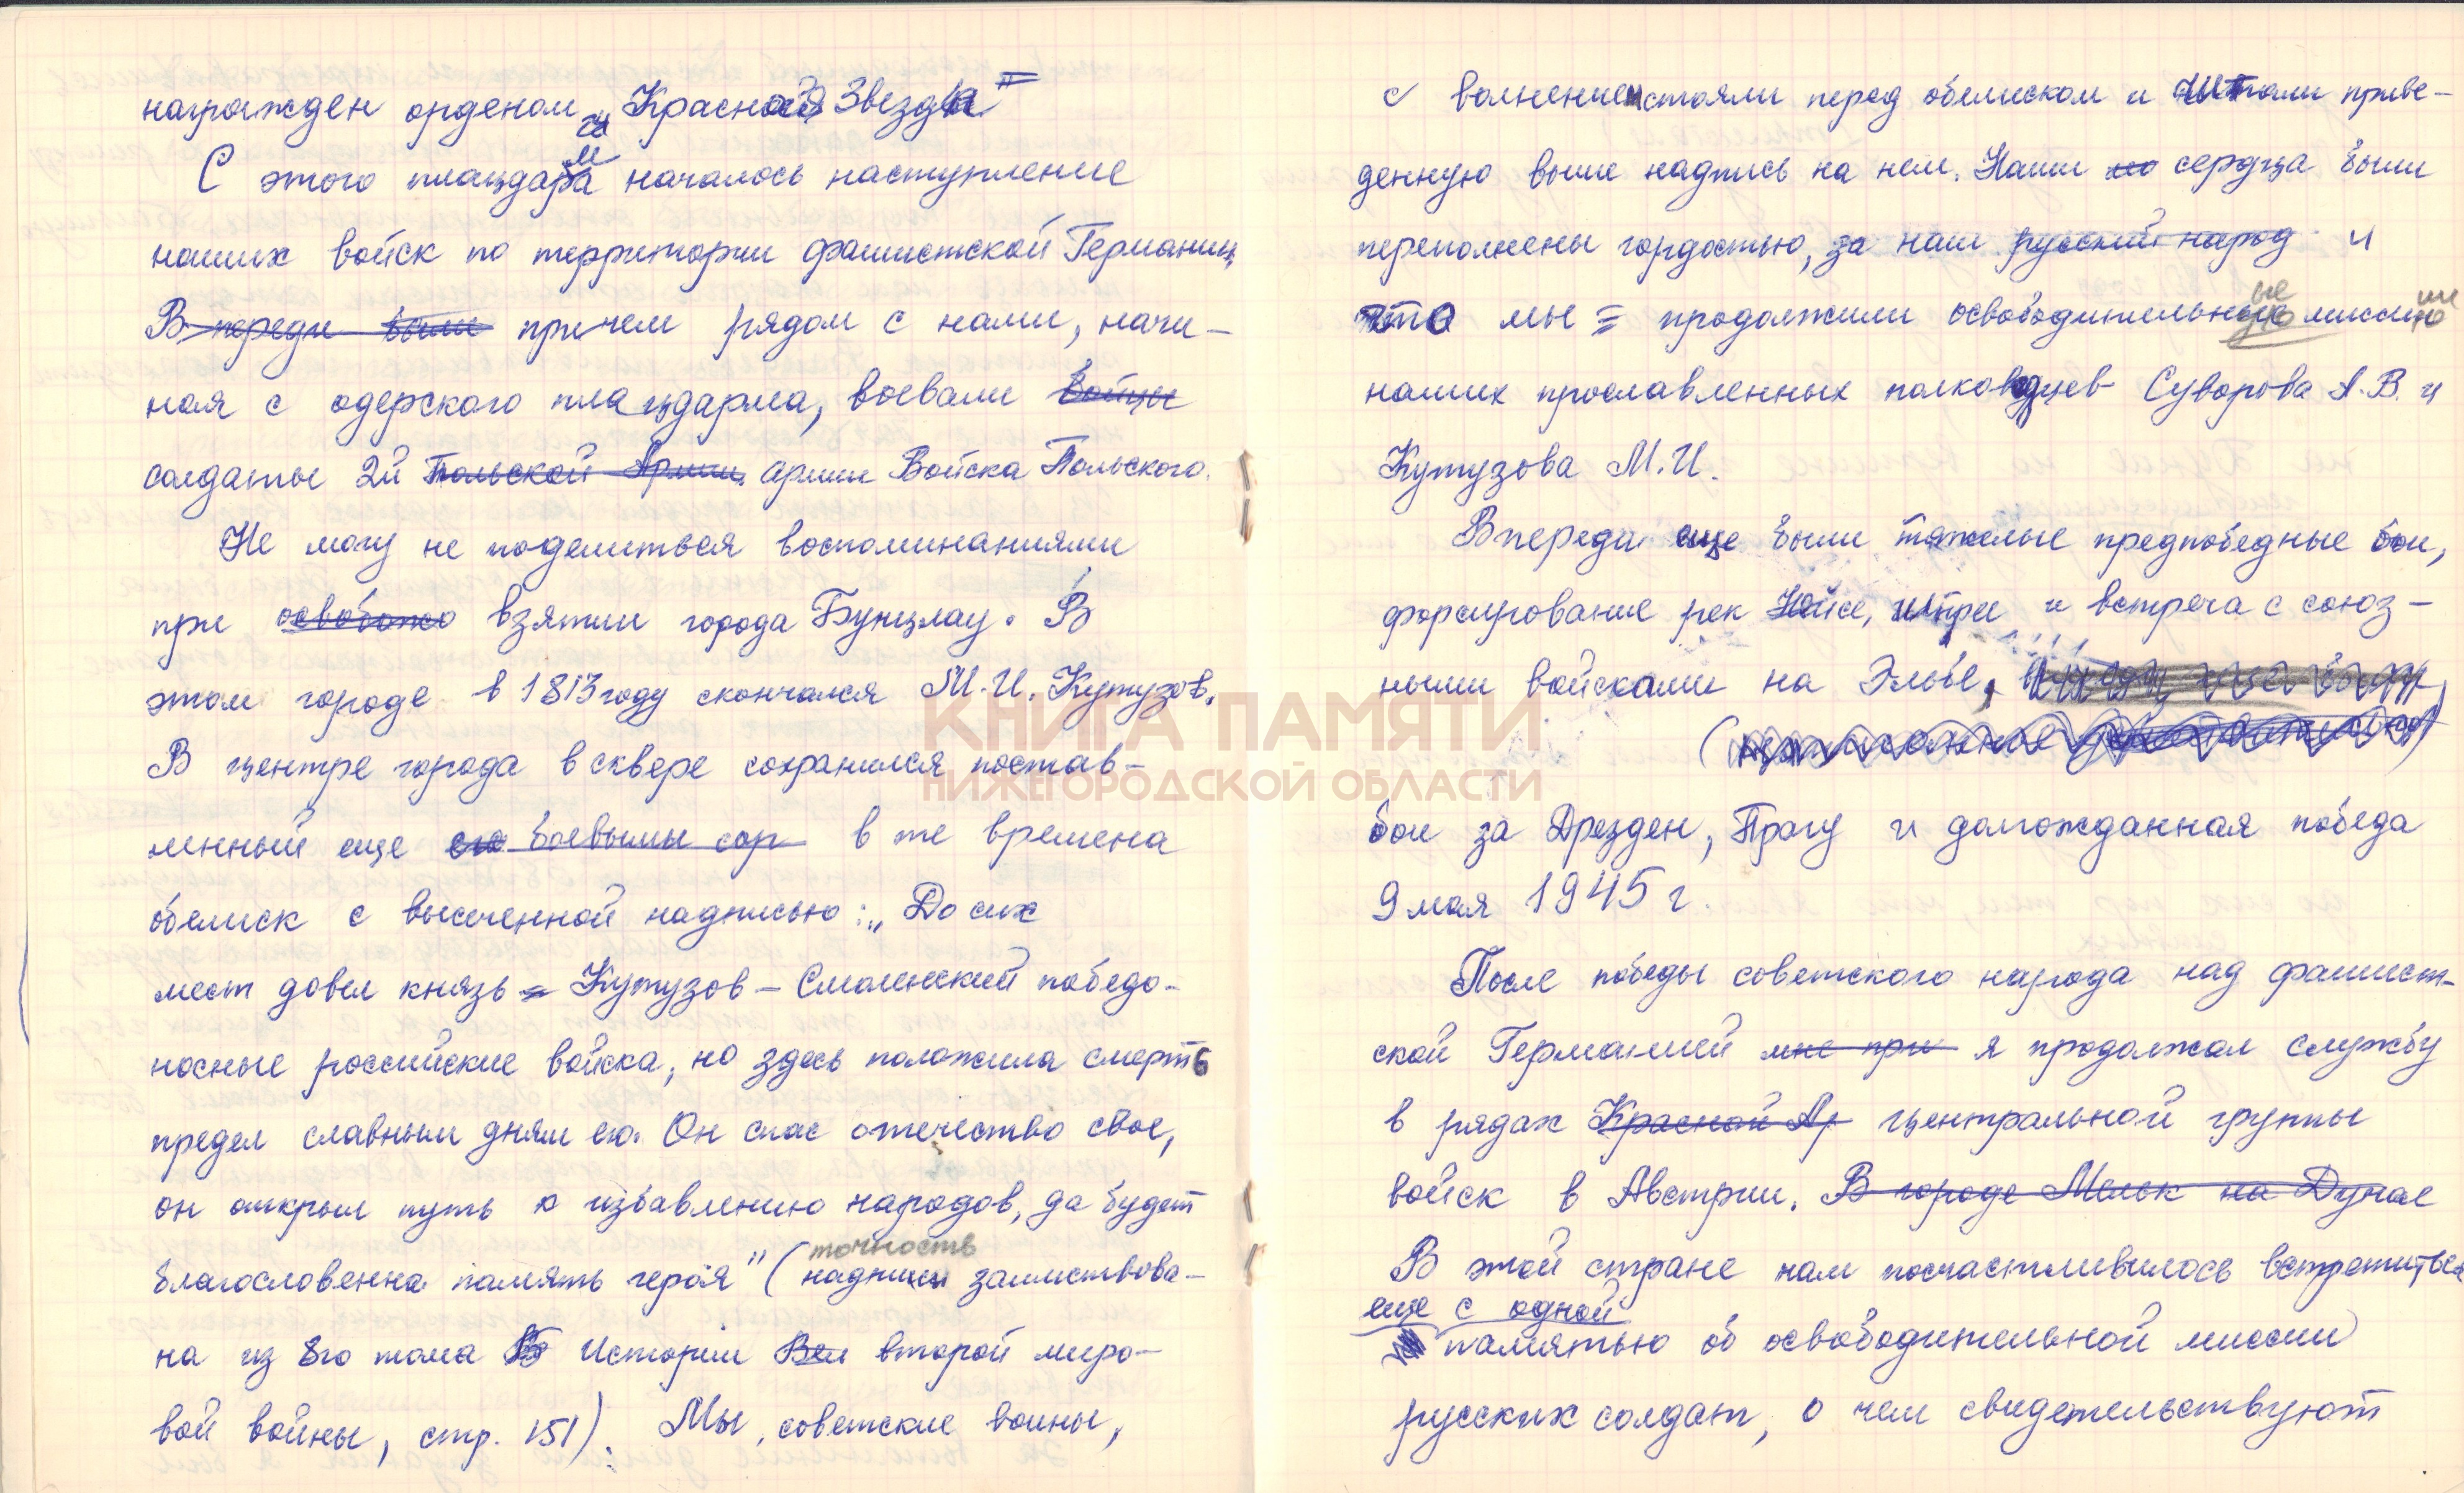 награжден орденом „Красная Звезда"
С этого плацдарма началось наступление
наших войск по территории фашистской Германии,
В переди были причем рядом с нами, начи-
ная с одерского плацдарма, воевали бойцы
солдаты 2й Польской Армии армии Войска Польского.
Не могу не поделиться воспоминаниями
при освобожд взятии города Бунцлау. В
этом городе в 1813 году скончался М.И. Кутузов.
В центре города в сквере сохранился постав-
ленный еще его боевыми сор в те времена
обелиск с высеченной надписью: „До сих
мест довел князь - Кутузов - Смоленский победо-
носные российские войска, но здесь положила смерть
предел славным дням его. Он спас отечество свое,
он открыл путь к избавлению народов, да будет
точность
благословенна память героя" (надписи заимствова-
на из 8го тома Истории Вел второй миро-
вой войны, стр. 151). Мы, советские воины,
с волнением стояли перед обелиском и читали приве-
денную выше надпись на нем. Наши сердца были
переполнены гордостью, за наш русский народ и
что мы = продолжили освободительные миссии
наших прославленных полководцев Суворова А.В. и
Кутузова М.И.
Впереди еще были тяжелые предпобедные бои,
форсирование рек Нейсе, Шпрее и встреча с союз-
ными войсками на Эльбе,
бои за Дрезден, Прагу и долгожданная победа
9 мая 1945 г.
После победы советского народа над фашист-
ской Германией мне при я продолжал службу
в рядах Красной Ар центральной группы
войск в Австрии. В городе Мельк на Дунае
В этой стране нам посчастливилось встретиться
еще с одной
памятью об освободительной миссии
русских солдат, о чем свидетельствуют
КНИГА ПАМЯТИ
НИЖЕГОРОДСКОЙ ОБЛАСТИ